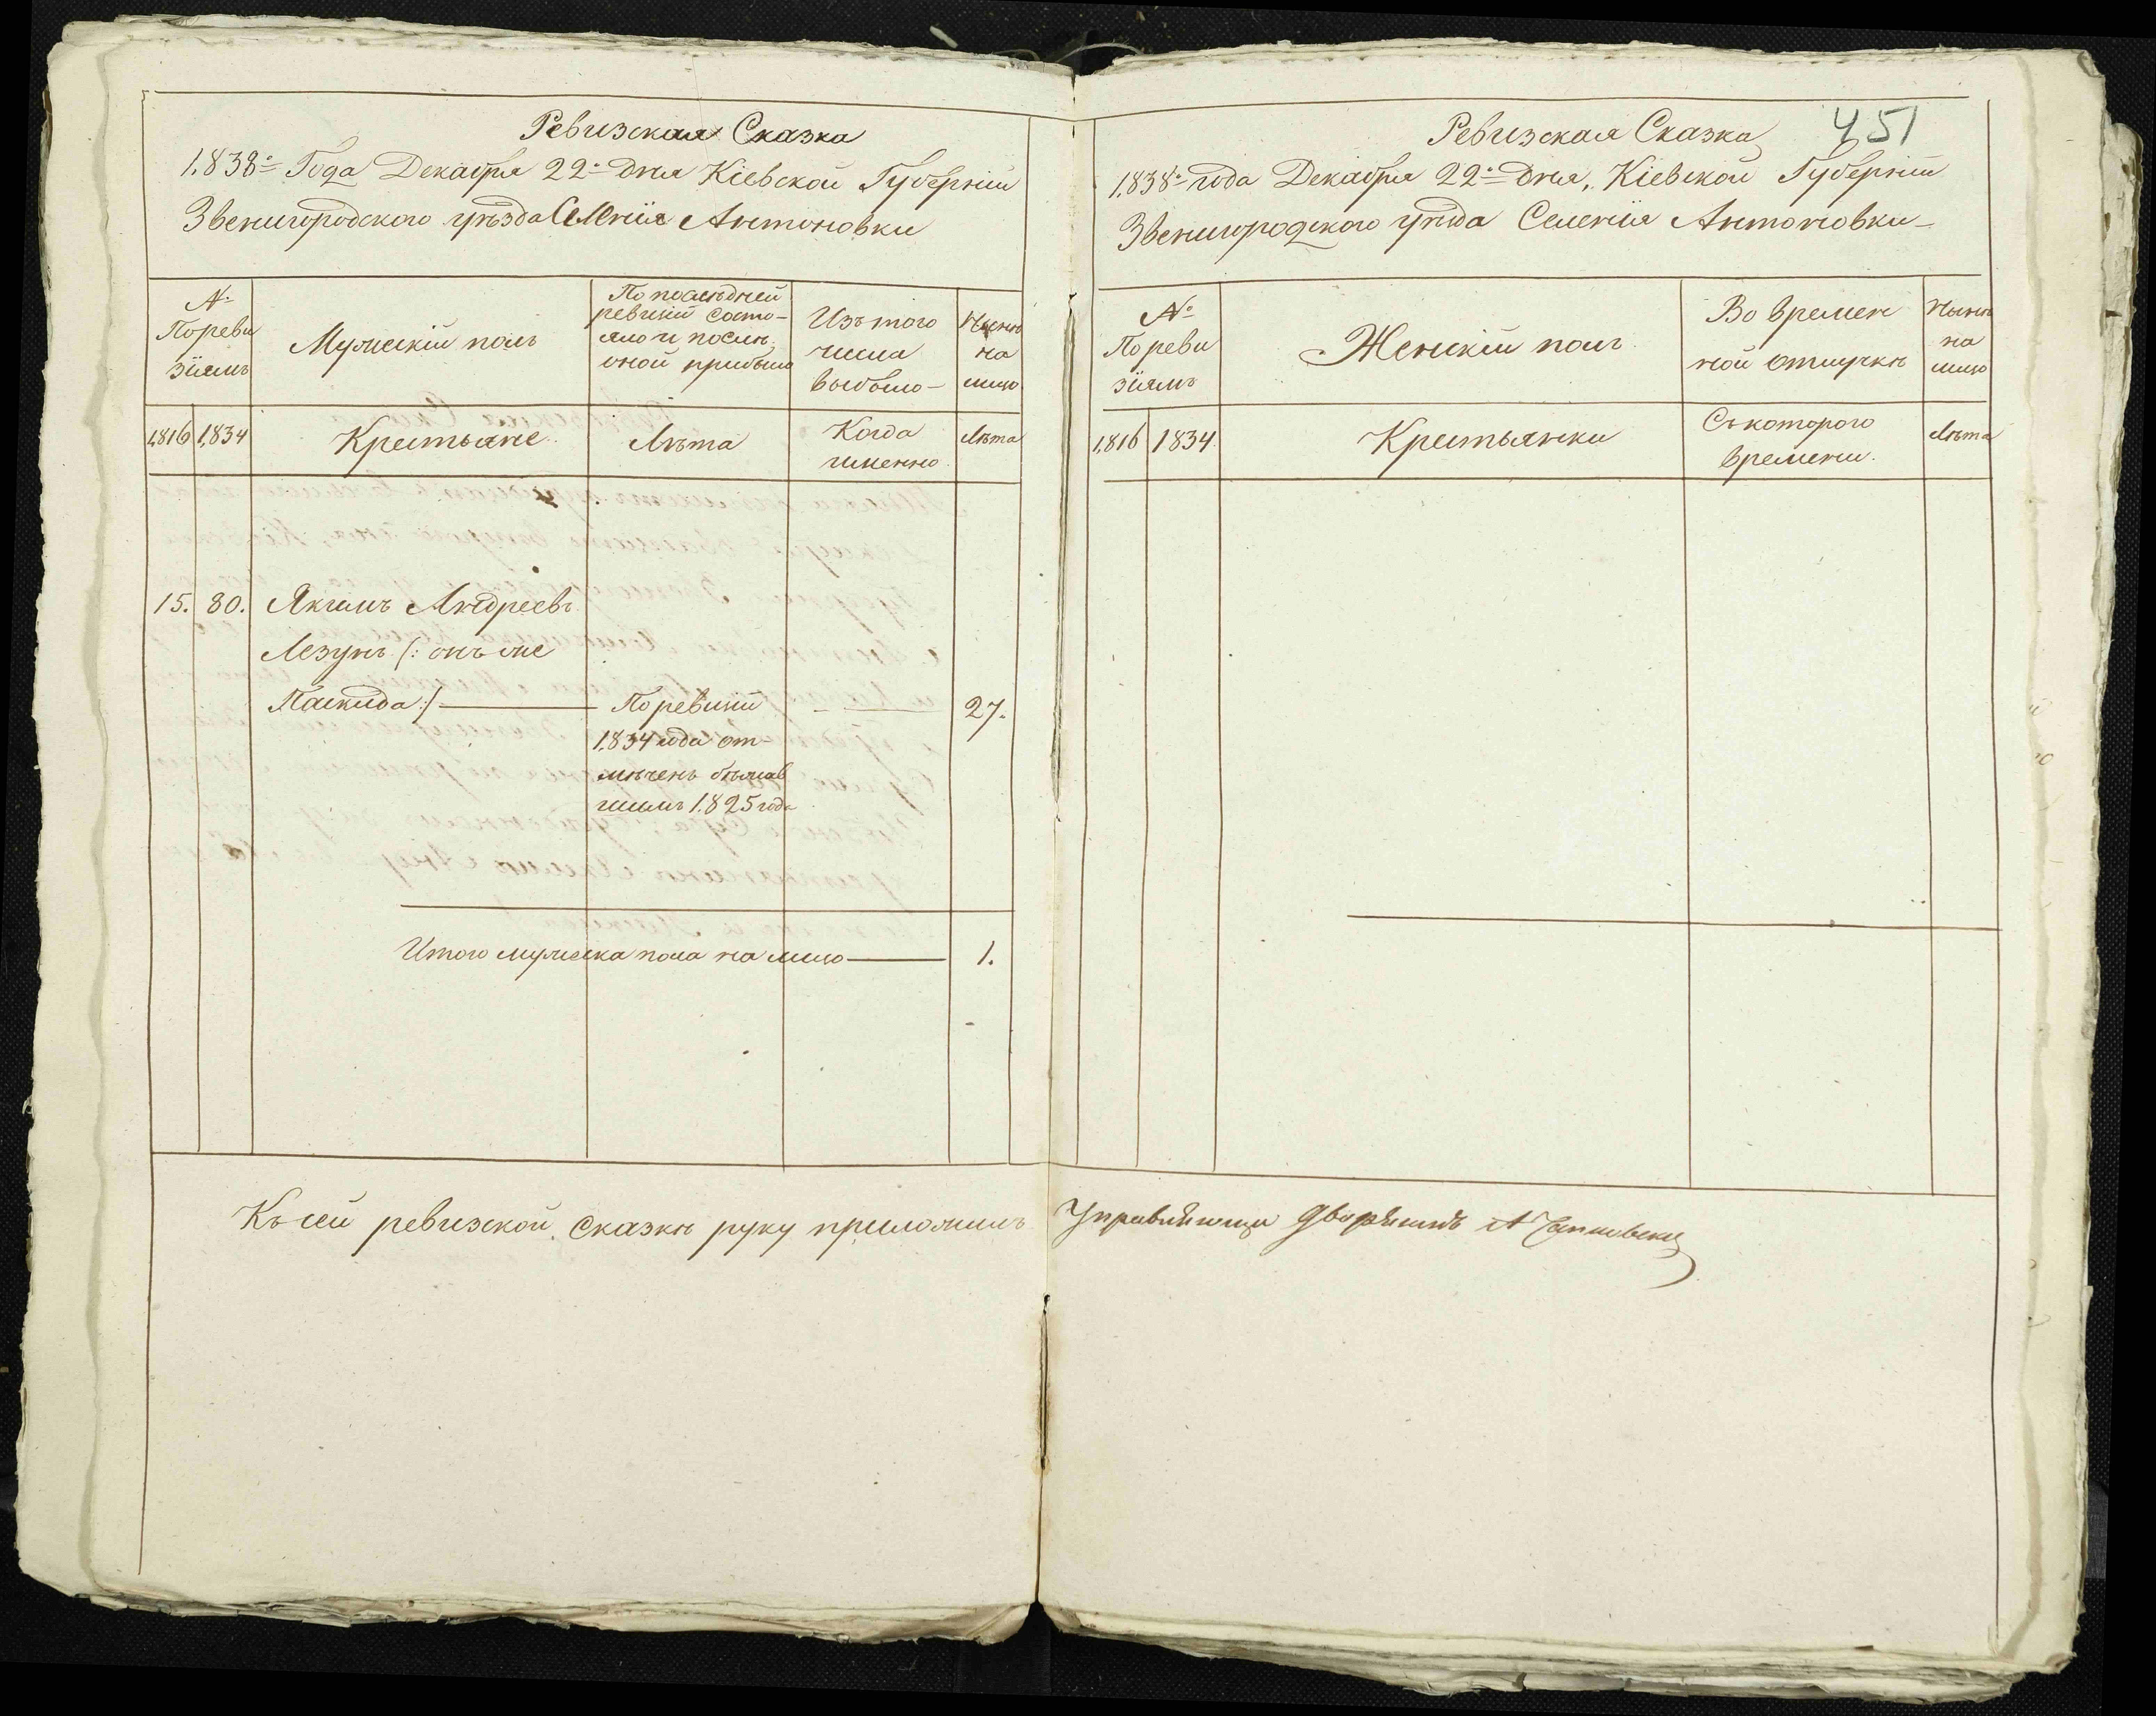 Ревизская Сказка
1.838го Года Декабря 22го дня Кіевской Губерніи
Звенигородского уѣзда Селенія Антоновки
№
По реви
зіямъ
Мужескій полъ
По послѣдней
ревизіи состо-
яло и послѣ
оной прибыло
Изъ того
числа
выбыло-
Нынѣ
на
лицо
1.816
1.834
Крестьяне
Лѣта
Когда
именно
Лѣта
15. 80. Якимъ Андреевъ
Лезунъ (: онъ же
Паскида :) По ревизіи 27.
1.834 года от-
мѣченъ бѣжав
шимъ 1.825 года
Итого мужеска пола на лицо 1.
Къ сей ревизской сказкѣ руку приложилъ
451
Ревизская Сказка
1.838го года Декабря 22го дня, Кіевской Губерніи
Звенигородского уѣзда Селенія Антоновки-
№
По реви
зіямъ
Женскій полъ
Во времен
ной отлучкѣ
Нынѣ
на
лицо
1.816
1834.
Крестьянки
Съ которого
времени.
Лѣта
Управляющи дворянинъ А